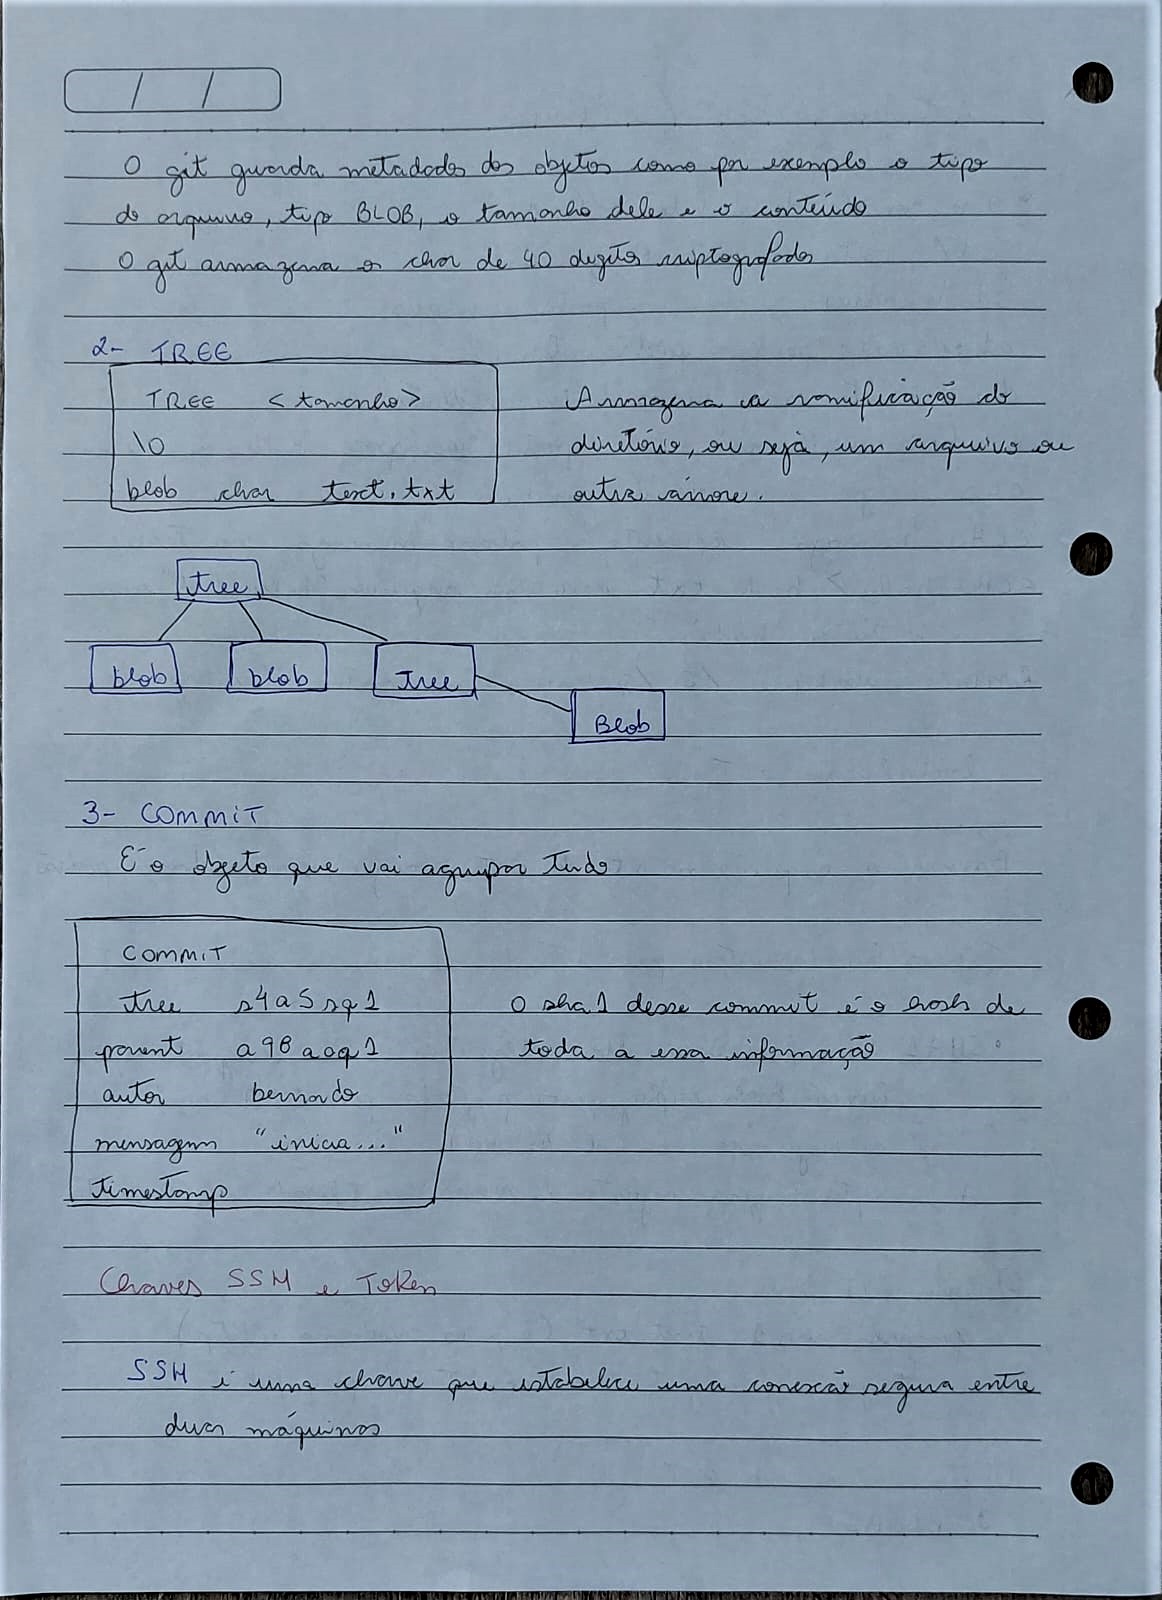 O git guarda metadados dos objetos como por exemplo o tipo
do arquivo, tipo BLOB, o tamanho dele e o conteúdo
O git armazena os char de 40 digitos criptografados
2- TREE
TREE <tamanho>
\0
blob char text.txt
Armazena a ramificação do
diretório, ou sejá, um arquivo ou
outra árvore.
tree
blob blob tree
Blob
3- COMMIT
É o objeto que vai agrupar tudo
COMMIT
tree s4a5sq1
parent a98aoq1
autor bernardo
mensagem "inicia..."
timestamp
O sha1 desse commit é o hash de
toda a essa informação
Chaves SSH e Token
SSH é uma chave que estabelece uma conexão segura entre
duas máquinas